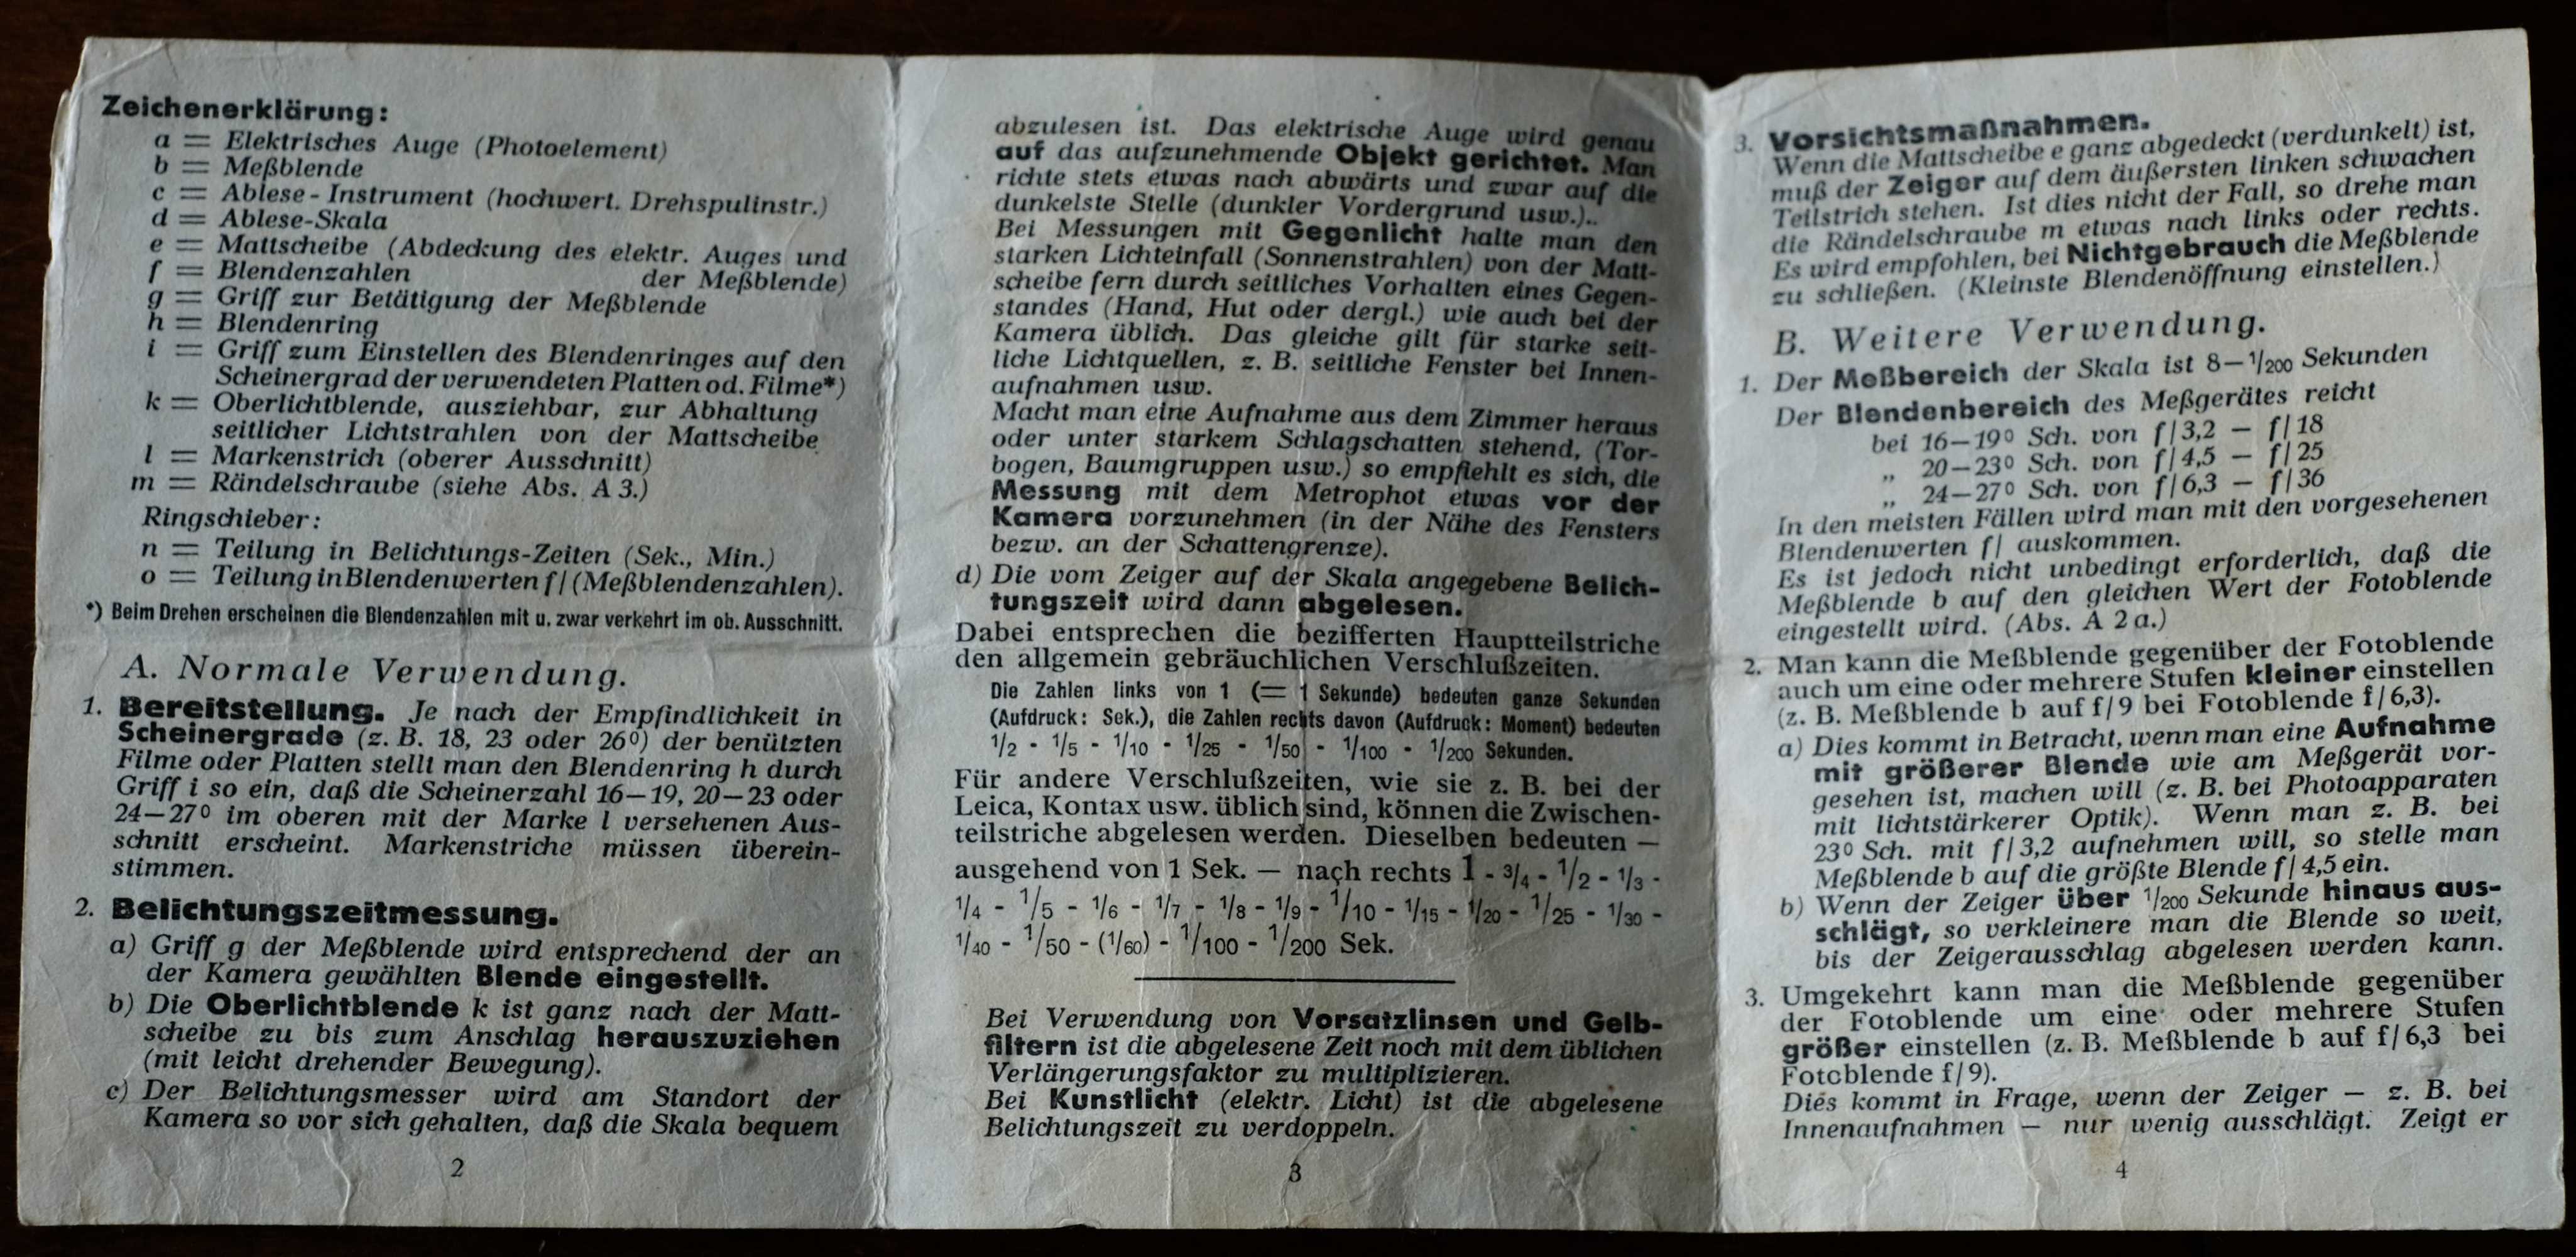 Zeichenerklärung:
a = Elektrisches Auge (Photoelement)
b = Meßblende
c = Ablese-Instrument (hochwert. Drehspulinstr.)
d = Ablese-Skala
e = Mattscheibe (Abdeckung des elektr. Auges und
f = Blendenzahlen der Meßblende)
g = Griff zur Betätigung der Meßblende
h = Blendenring
i = Griff zum Einstellen des Blendenringes auf den
Scheinergrad der verwendeten Platten od. Filme*)
k = Oberlichtblende, ausziehbar, zur Abhaltung
seitlicher Lichtstrahlen von der Mattscheibe
l = Markenstrich (oberer Ausschnitt)
m = Rändelschraube (siehe Abs. A 3.)
Ringschieber:
n = Teilung in Belichtungs-Zeiten (Sek., Min.)
o = Teilung in Blendenwerten f/ (Meßblendenzahlen).
*) Beim Drehen erscheinen die Blendenzahlen mit u. zwar verkehrt im ob. Ausschnitt.
A. Normale Verwendung.
1. Bereitstellung. Je nach der Empfindlichkeit in
Scheinergrade (z. B. 18, 23 oder 26⁰) der benützten
Filme oder Platten stellt man den Blendenring h durch
Griff i so ein, daß die Scheinerzahl 16—19, 20—23 oder
24—27⁰ im oberen mit der Marke l versehenen Aus-
schnitt erscheint. Markenstriche müssen überein-
stimmen.
2. Belichtungszeitmessung.
a) Griff g der Meßblende wird entsprechend der an
der Kamera gewählten Blende eingestellt.
b) Die Oberlichtblende k ist ganz nach der Matt-
scheibe zu bis zum Anschlag herauszuziehen
(mit leicht drehender Bewegung).
c) Der Belichtungsmesser wird am Standort der
Kamera so vor sich gehalten, daß die Skala bequem
2
abzulesen ist. Das elektrische Auge wird genau
auf das aufzunehmende Objekt gerichtet. Man
richte stets etwas nach abwärts und zwar auf die
dunkelste Stelle (dunkler Vordergrund usw.)..
Bei Messungen mit Gegenlicht halte man den
starken Lichteinfall (Sonnenstrahlen) von der Matt-
scheibe fern durch seitliches Vorhalten eines Gegen-
standes (Hand, Hut oder dergl.) wie auch bei der
Kamera üblich. Das gleiche gilt für starke seit-
liche Lichtquellen, z. B. seitliche Fenster bei Innen-
aufnahmen usw.
Macht man eine Aufnahme aus dem Zimmer heraus
oder unter starkem Schlagschatten stehend, (Tor-
bogen, Baumgruppen usw.) so empfiehlt es sich, die
Messung mit dem Metrophot etwas vor der
Kamera vorzunehmen (in der Nähe des Fensters
bezw. an der Schattengrenze).
d) Die vom Zeiger auf der Skala angegebene Belich-
tungszeit wird dann abgelesen.
Dabei entsprechen die bezifferten Hauptteilstriche
den allgemein gebräuchlichen Verschlußzeiten.
Die Zahlen links von 1 (= 1 Sekunde) bedeuten ganze Sekunden
(Aufdruck: Sek.), die Zahlen rechts davon (Aufdruck: Moment) bedeuten
1/2 - 1/5 - 1/10 - 1/25 - 1/50 - 1/100 - 1/200 Sekunden.
Für andere Verschlußzeiten, wie sie z. B. bei der
Leica, Kontax usw. üblich sind, können die Zwischen-
teilstriche abgelesen werden. Dieselben bedeuten —
ausgehend von 1 Sek. — nach rechts 1 - 3/4 - 1/2 - 1/3 -
1/4 - 1/5 - 1/6 - 1/7 - 1/8 - 1/9 - 1/10 - 1/15 - 1/20 - 1/25 - 1/30 -
1/40 - 1/50 - (1/60) - 1/100 - 1/200 Sek.
Bei Verwendung von Vorsatzlinsen und Gelb-
filtern ist die abgelesene Zeit noch mit dem üblichen
Verlängerungsfaktor zu multiplizieren.
Bei Kunstlicht (elektr. Licht) ist die abgelesene
Belichtungszeit zu verdoppeln.
3
3. Vorsichtsmaßnahmen.
Wenn die Mattscheibe e ganz abgedeckt (verdunkelt) ist,
muß der Zeiger auf dem äußersten linken schwachen
Teilstrich stehen. Ist dies nicht der Fall, so drehe man
die Rändelschraube m etwas nach links oder rechts.
Es wird empfohlen, bei Nichtgebrauch die Meßblende
zu schließen. (Kleinste Blendenöffnung einstellen.)
B. Weitere Verwendung.
1. Der Meßbereich der Skala ist 8—1/200 Sekunden
Der Blendenbereich des Meßgerätes reicht
bei 16—19⁰ Sch. von f/3,2 — f/18
„ 20—23⁰ Sch. von f/4,5 — f/25
„ 24—27⁰ Sch. von f/6,3 — f/36
In den meisten Fällen wird man mit den vorgesehenen
Blendenwerten f/ auskommen.
Es ist jedoch nicht unbedingt erforderlich, daß die
Meßblende b auf den gleichen Wert der Fotoblende
eingestellt wird. (Abs. A 2 a.)
2. Man kann die Meßblende gegenüber der Fotoblende
auch um eine oder mehrere Stufen kleiner einstellen
(z. B. Meßblende b auf f/9 bei Fotoblende f/6,3).
a) Dies kommt in Betracht, wenn man eine Aufnahme
mit größerer Blende wie am Meßgerät vor-
gesehen ist, machen will (z. B. bei Photoapparaten
mit lichtstärkerer Optik). Wenn man z. B. bei
23⁰ Sch. mit f/3,2 aufnehmen will, so stelle man
Meßblende b auf die größte Blende f/4,5 ein.
b) Wenn der Zeiger über 1/200 Sekunde hinaus aus-
schlägt, so verkleinere man die Blende so weit,
bis der Zeigerausschlag abgelesen werden kann.
3. Umgekehrt kann man die Meßblende gegenüber
der Fotoblende um eine oder mehrere Stufen
größer einstellen (z. B. Meßblende b auf f/6,3 bei
Fotoblende f/9).
Dies kommt in Frage, wenn der Zeiger — z. B. bei
Innenaufnahmen — nur wenig ausschlägt. Zeigt er
4